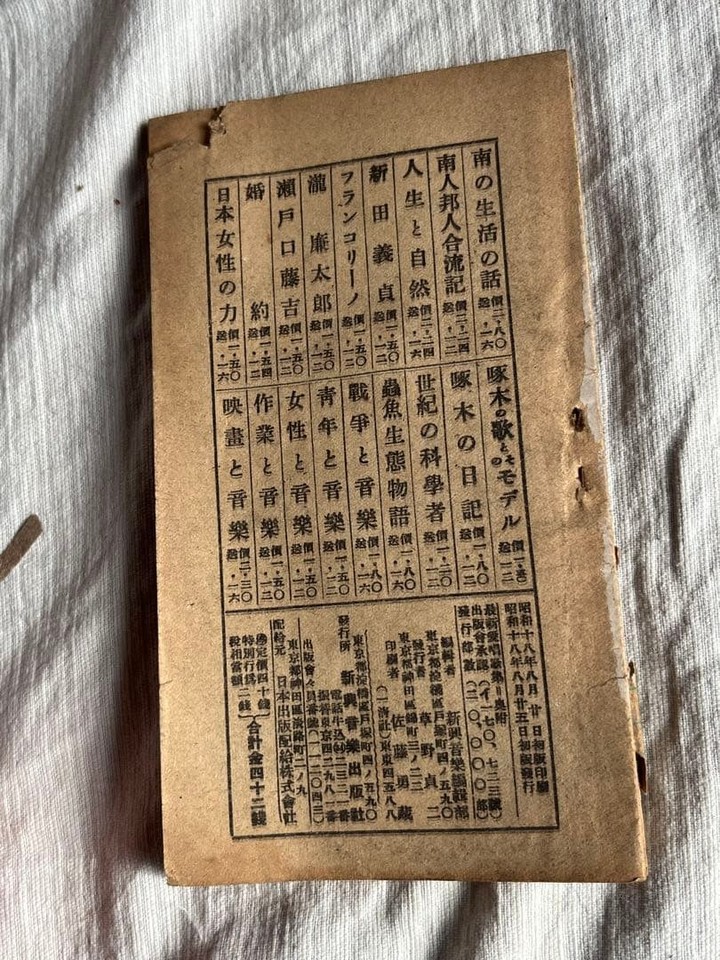 南の生活の話 價二・八〇 送・一六
南人邦人合流記 價二・二四 送・一二
人生と自然 價二・二四 送・一六
新田義貞 價一・五〇 送・一二
フランコリーノ 價一・五〇 送・一二
瀧廉太郎 價一・五〇 送・一二
瀨戸口藤吉 價一・五〇 送・一二
婚約 價一・五四 送・一二
日本女性の力 價一・五〇 送・一六
啄木の歌とそのモデル 送・一二
啄木の日記 價一・八〇 送・一二
世紀の科學者 價一・二〇 送・一二
蟲魚生態物語 價一・八〇 送・一六
戰爭と音樂 價一・八〇 送・一二
靑年と音樂 價一・五〇 送・一二
女性と音樂 價一・五〇 送・一二
作業と音樂 價一・五〇 送・一二
映畫と音樂 價二・三〇 送・一六
昭和十八年八月 廿 日初版印刷
昭和十八年八月廿五日初版發行
最新愛唱歌集=奥附
出版會承認(イ一七〇、七二三號)
發行部數(二〇、〇〇〇部)
編輯者 新興音樂編輯部
東京都淀橋區戸塚町四ノ五九〇
發行者 草野貞二
東京都神田區錦町三ノ二三
印刷者 佐藤勇藏
(一誠社)東東四五八八
東京都淀橋區戸塚町四ノ五九〇
發行所 新興音樂出版社
電話牛込㉞二三二一番
振替東京四二九八一番
出版會々員番號(一一二〇四三)
東京都神田區淡路町二ノ九
配給元 日本出版配給株式會社
㊞定價四十錢
特別行爲稅相當額 二錢
合計金四十二錢